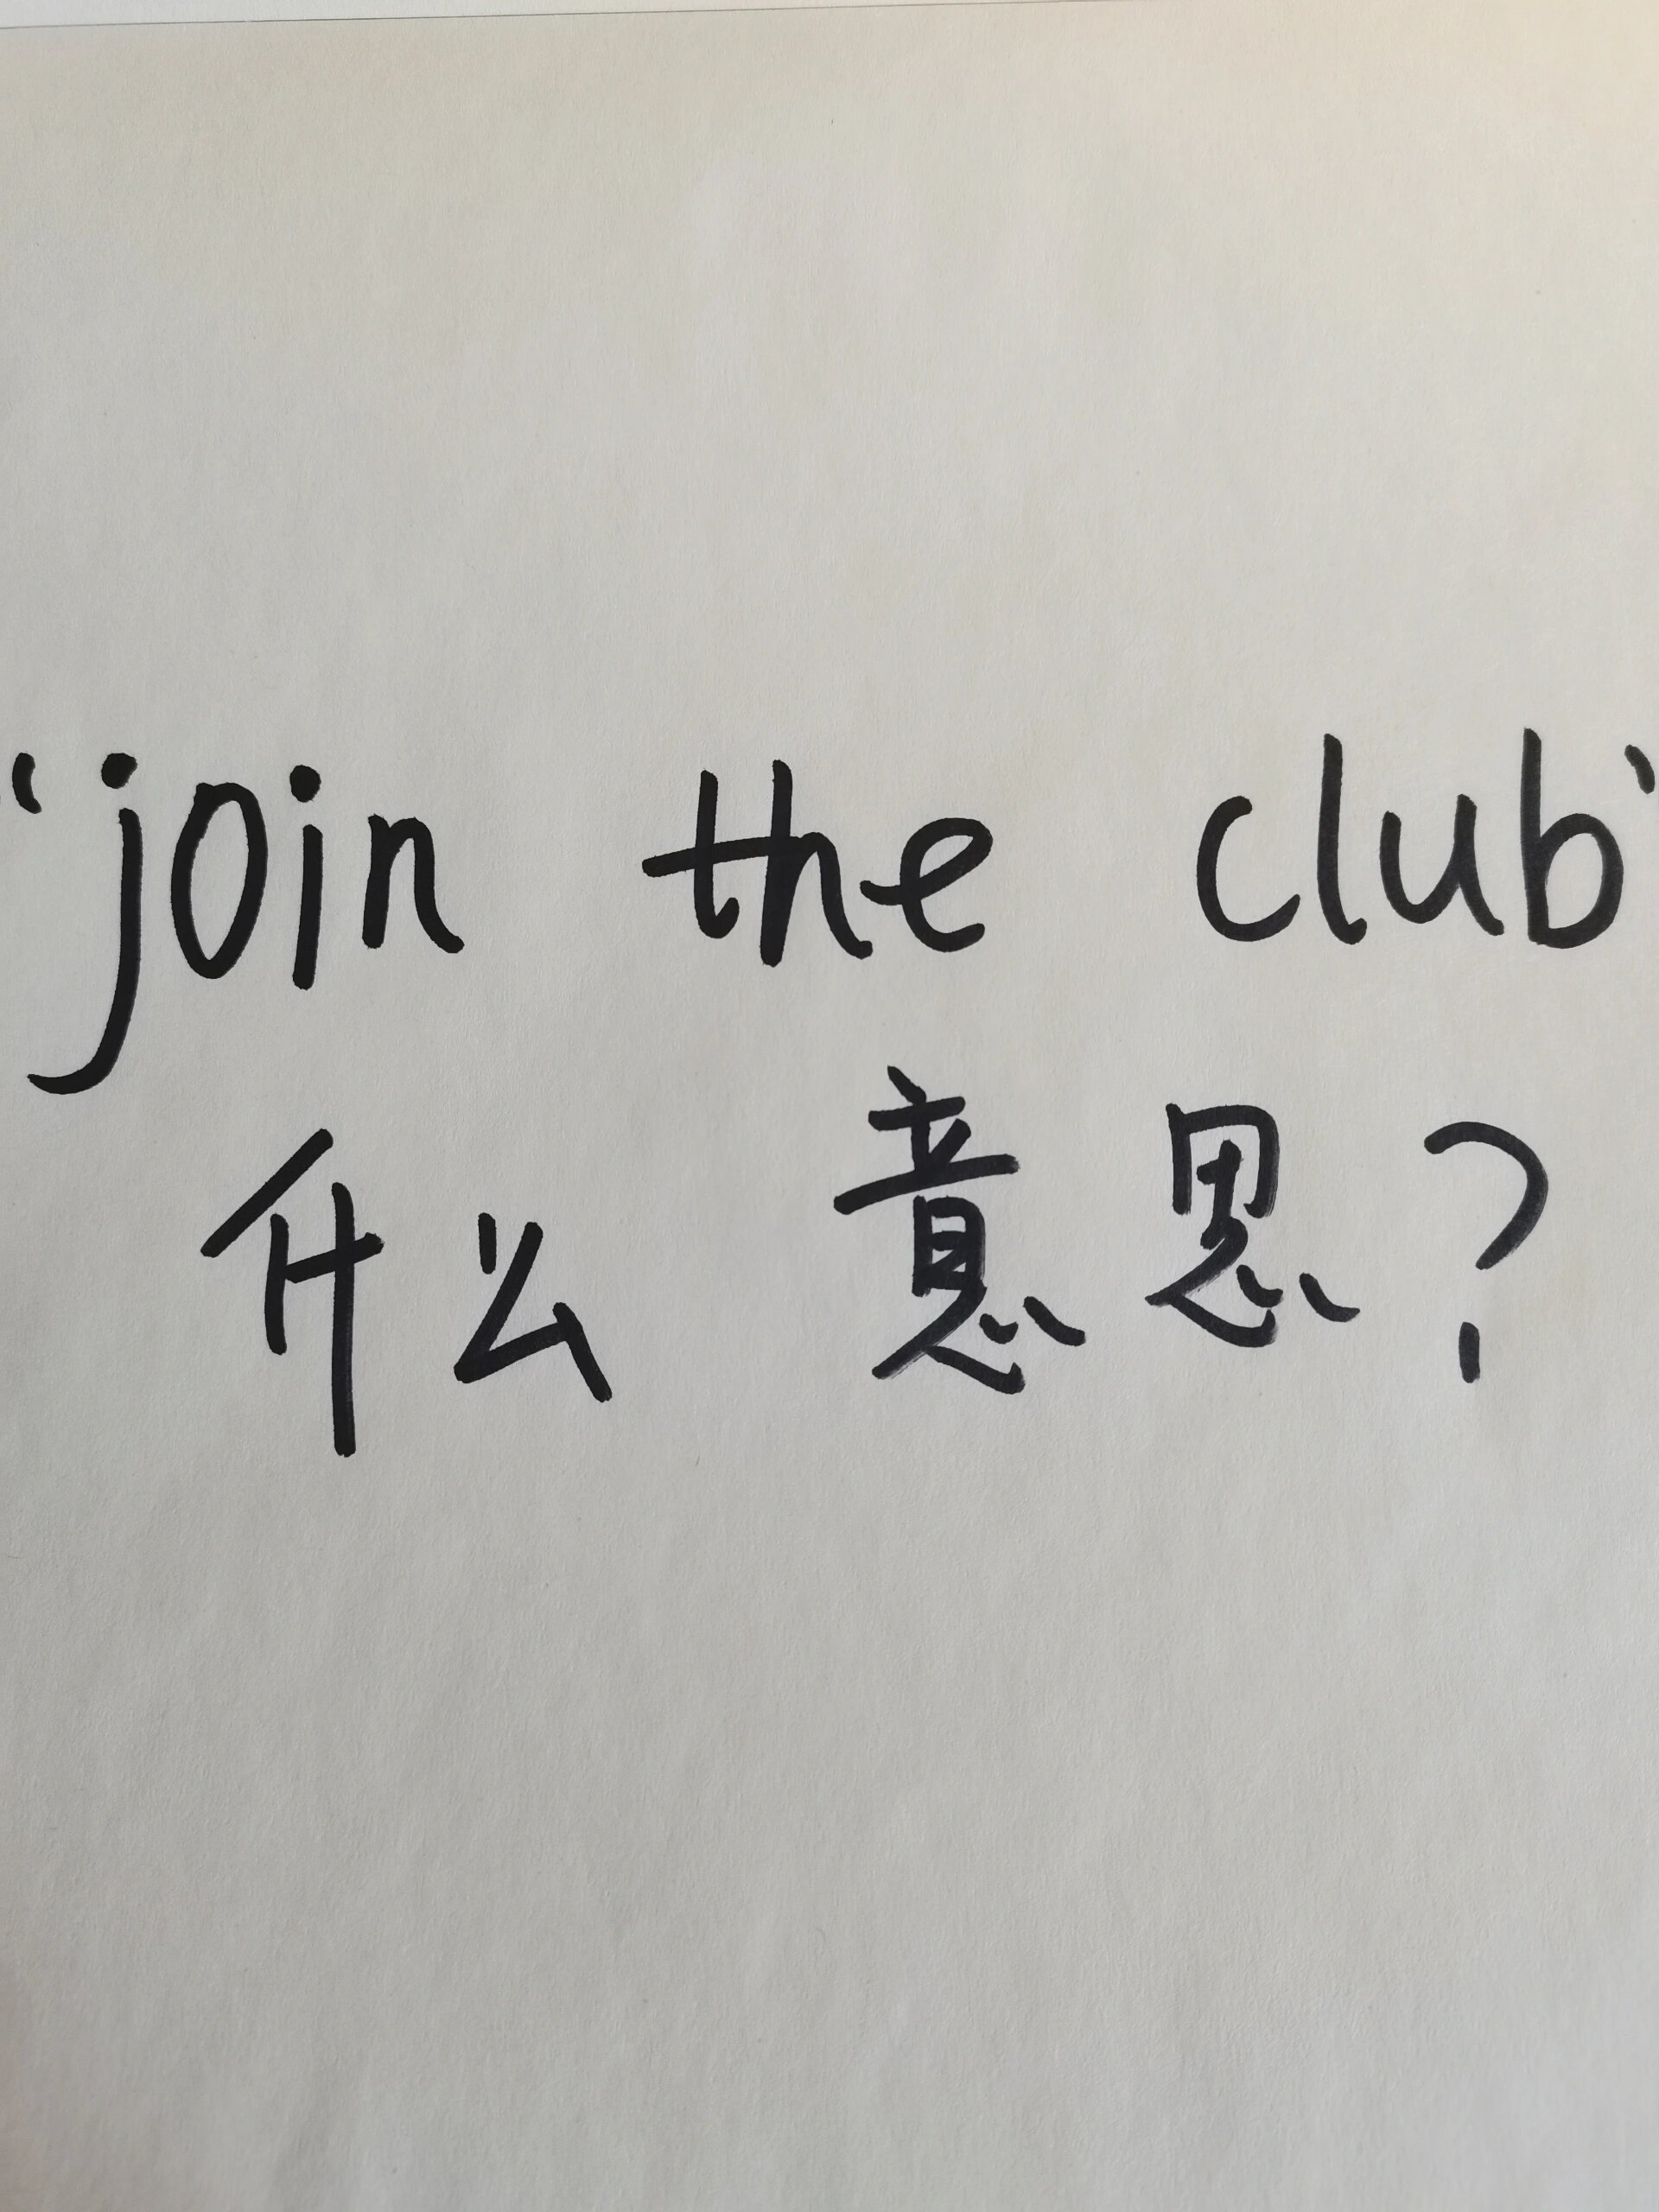 ‘join the club’
什么 意思?